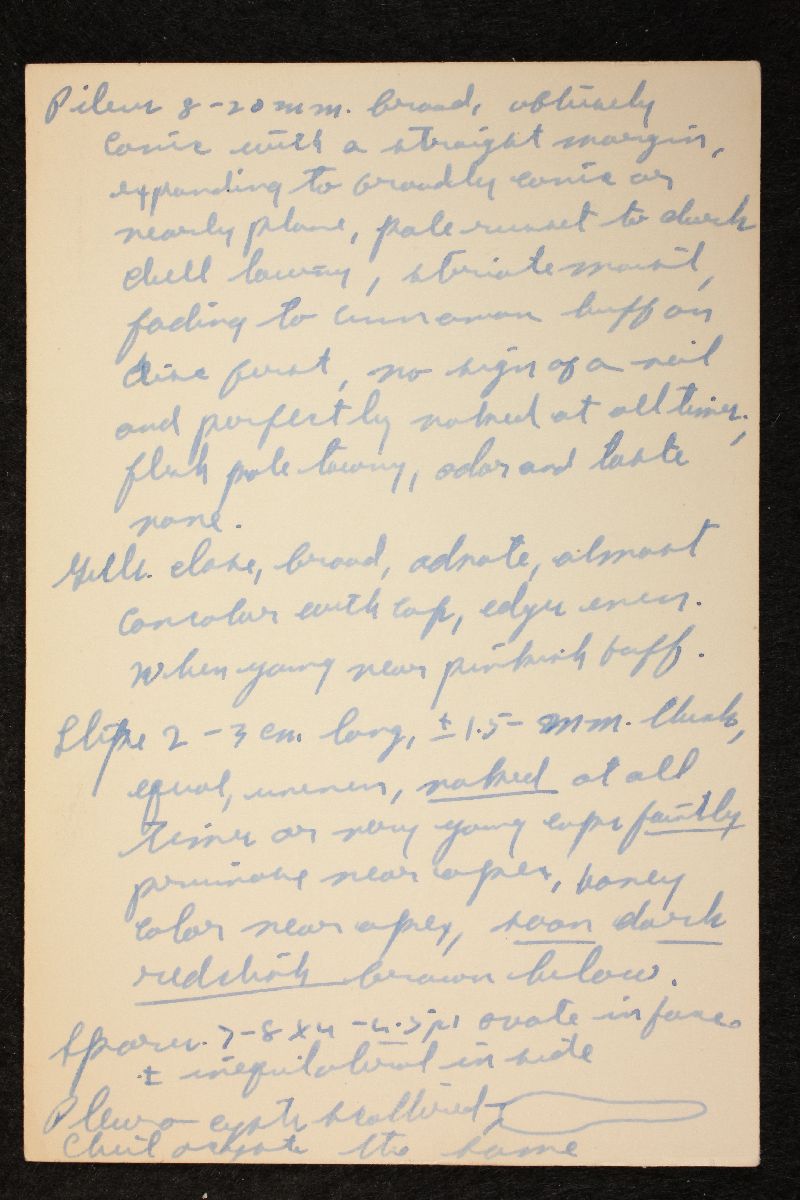 Pileus 8-20 mm. broad, obtusely
conic with a straight margin,
expanding to broadly conic or
nearly plane, pale russet to dark
dull tawny, striate moist,
fading to cinnamon buff on
disc first, no sign of a veil
and perfectly naked at all times;
flesh pale tawny, odor and taste
none.
Gills close, broad, adnate, almost
concolor with cap, edges even.
When young near pinkish buff.
Stipe 2-3 cm. long, ± 1.5- mm. thick,
equal, uneven, naked at all
times or very young caps faintly
pruinose near apex, honey
color near apex, soon dark
redshish brown below.
Spores. 7-8 x 4-4.5 µ ovate in face
± inequilateral in side
Pleuro-cysts scattered,
Cheilocysts the same